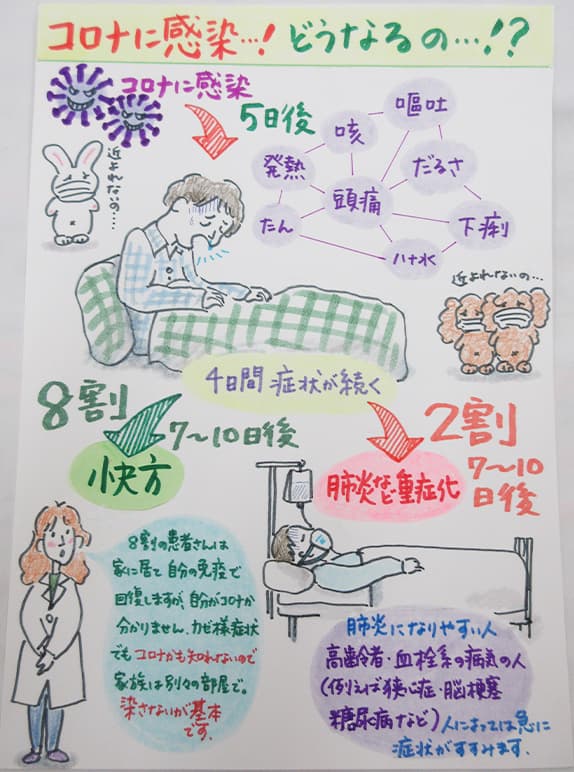 コロナに感染…! どうなるの…!?
コロナに感染
5日後
近よれないの…
発熱
咳
嘔吐
だるさ
頭痛
たん
ハナ水
下痢
近よれないの…
4日間 症状が続く
8割
7〜10日後
快方
2割
7〜10
日後
肺炎など重症化
8割の患者さんは
家に居て 自分の免疫で
回復しますが、自分がコロナか
分かりません、カゼ様症状
でもコロナかも知れないので
家族は別々の部屋で。
染さないが基本
です。
肺炎になりやすい人
高齢者・血栓系の病気の人
(例えば狭心症・脳梗塞
糖尿病など)人によっては急に
症状がすすみます。